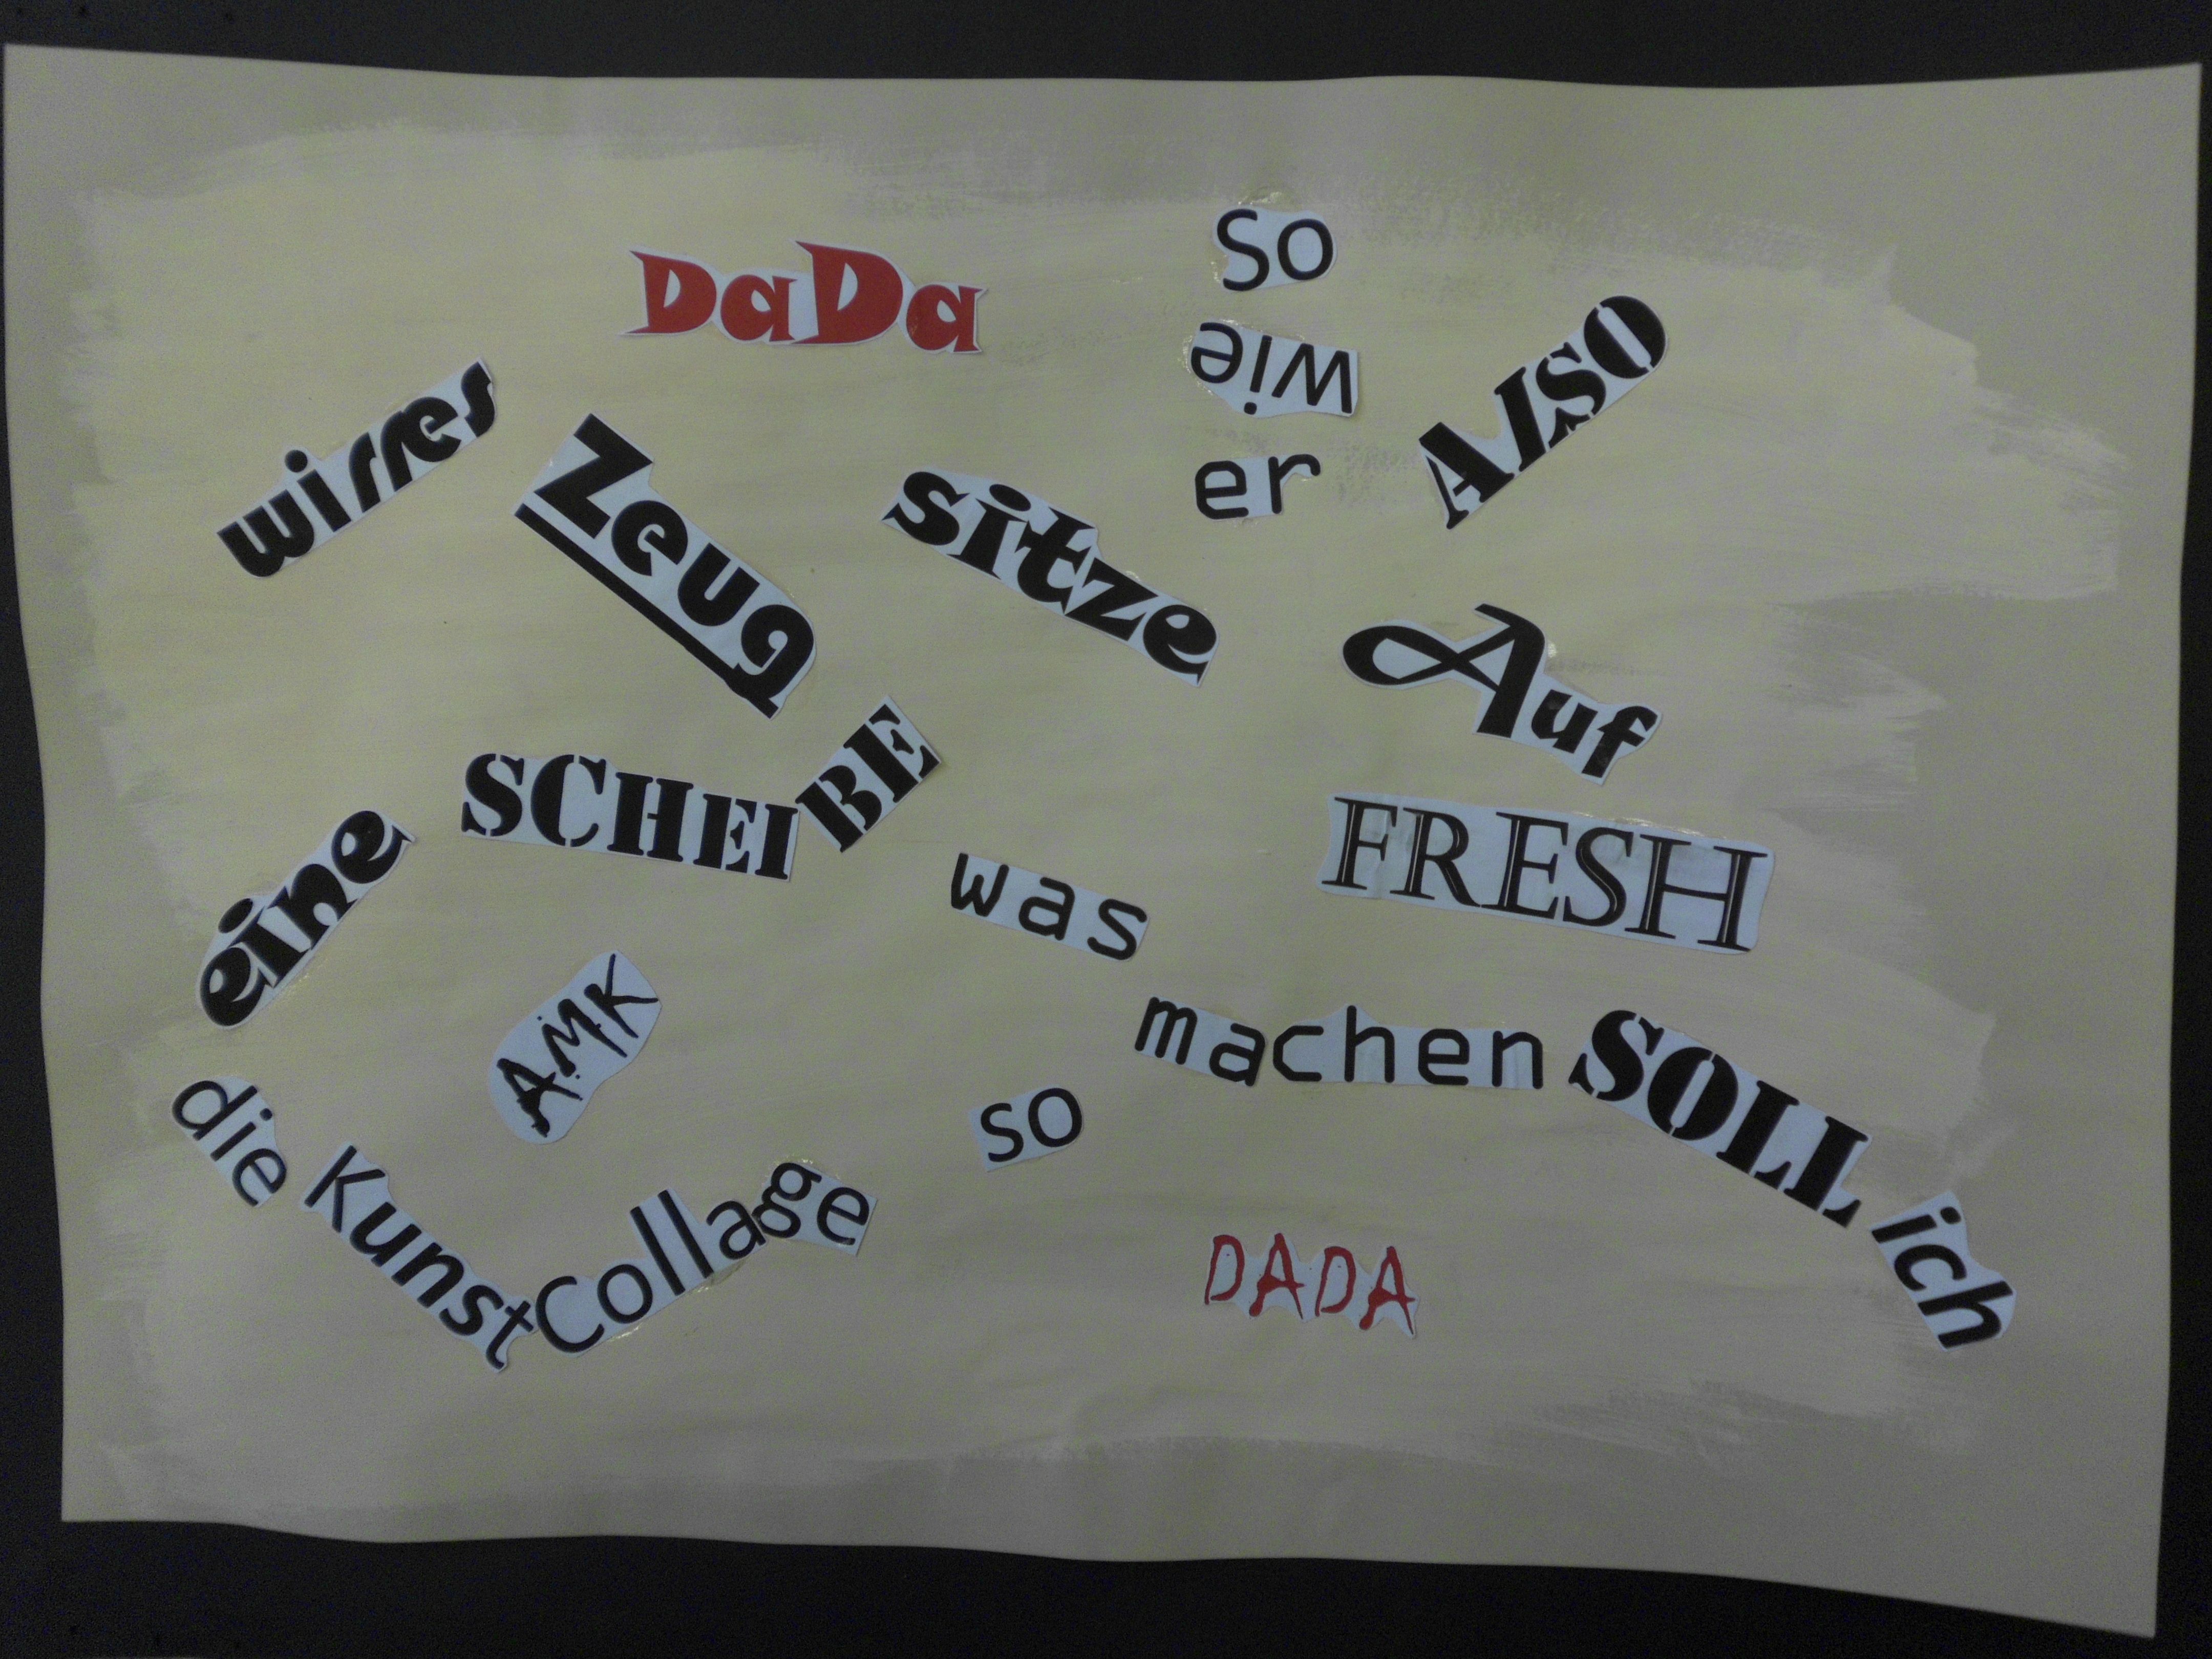 DaDa
So
wie
er
ALSO
wirres
Zeug
sitze
Auf
SCHEIBE
FRESH
eine
was
AMK
machen
SOLL
die
so
ich
Kunst
Collage
DADA